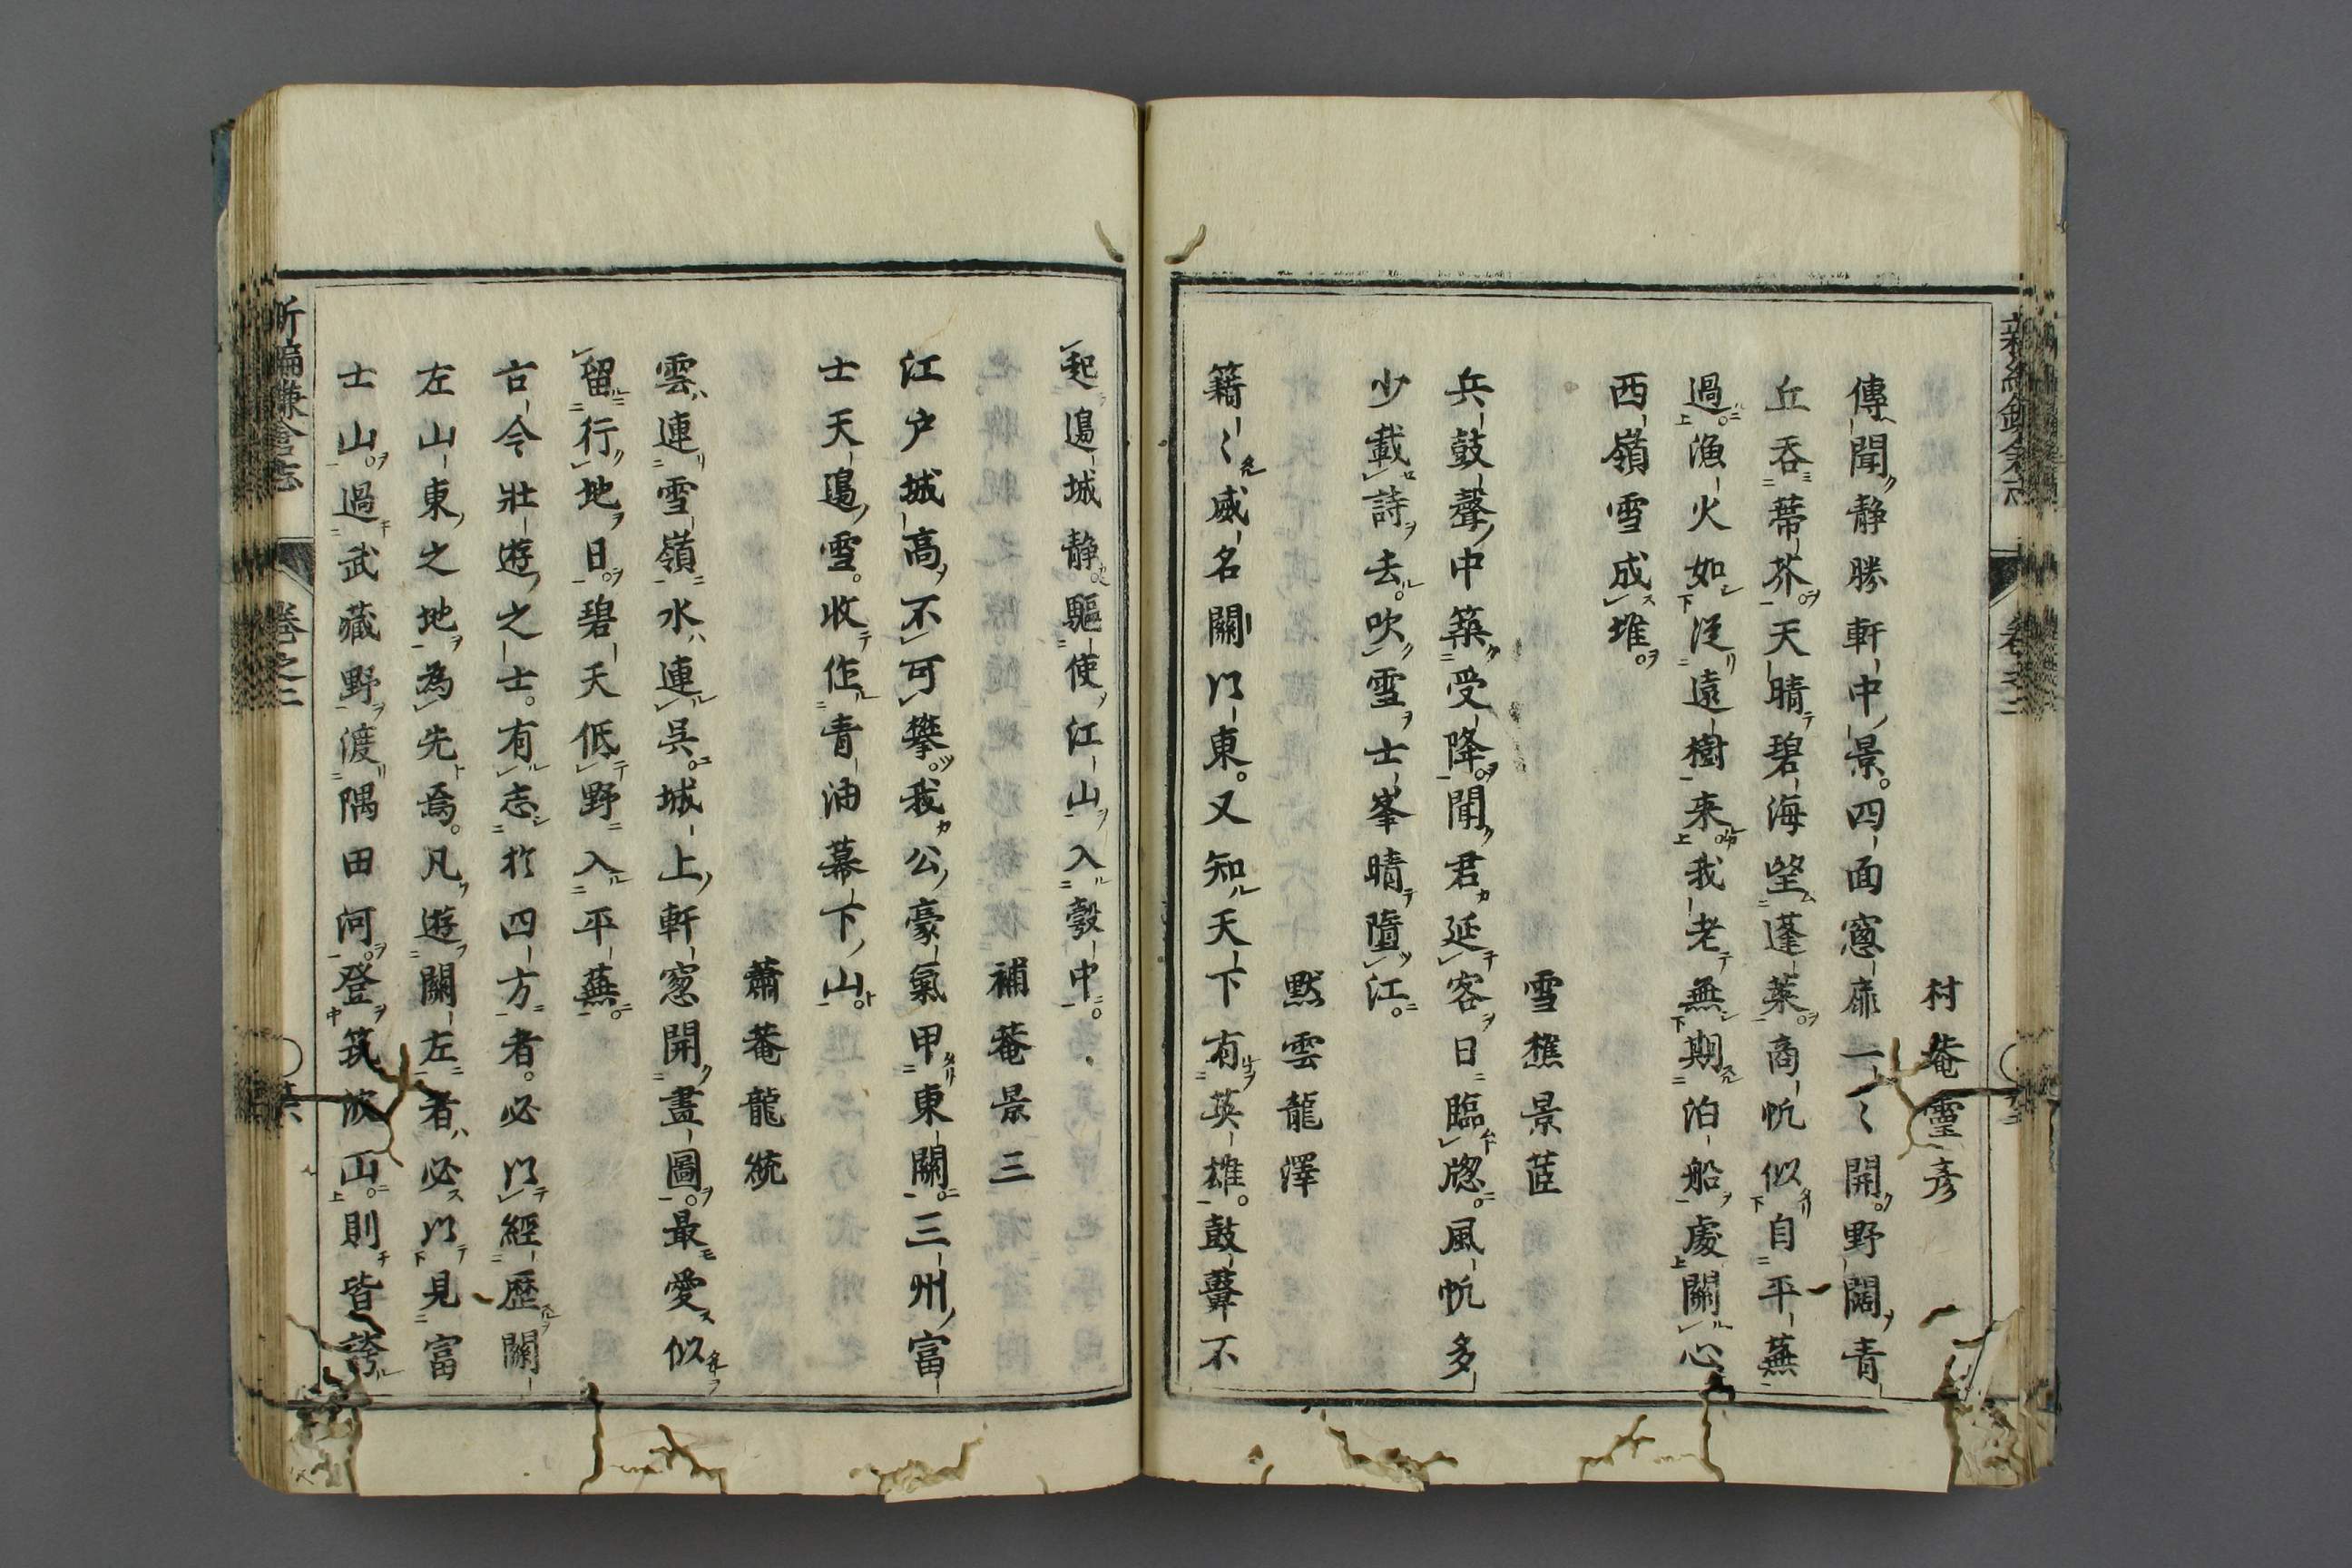 村菴靈彥
傳聞静勝軒中景四面窻扉一〻開野闊青
丘吞蔕芥天晴碧海望蓬萊商帆似自平蕪
過漁火如從遠樹来我老無期泊船處關心
西嶺雪成堆
雪樵景茝
兵鼓聲中築受降聞君延客日臨牕風帆多
少載詩去吹雪士峯晴墮江
黙雲龍澤
籍〻威名關以東又知天下有英雄鼓鼙不
起邉城静驅使江山入彀中
補菴景三
江户城高不可攀我公豪氣甲東關三州富
士天邉雪收作青油幕下山
蕭菴龍統
雲連雪嶺水連呉城上軒窻開畫圖最愛似
留行地日碧天低野入平蕪
古今壯遊之士有志於四方者必以經歴關
左山東之地為先焉凡遊關左者必以見富
士山過武藏野渡隅田河登筑波山則皆誇
新編鎌倉志
卷之二